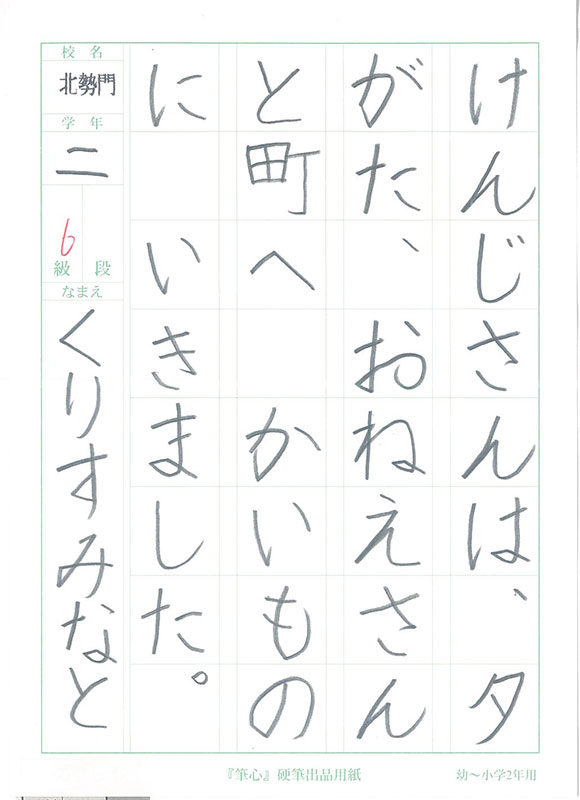 けんじさんは、夕
がた、おねえさん
と町へ　かいもの
に　いきました。
校名
北勢門
学年
二
6
級 段
なまえ
くりすみなと
『筆心』硬筆出品用紙
幼〜小学2年用